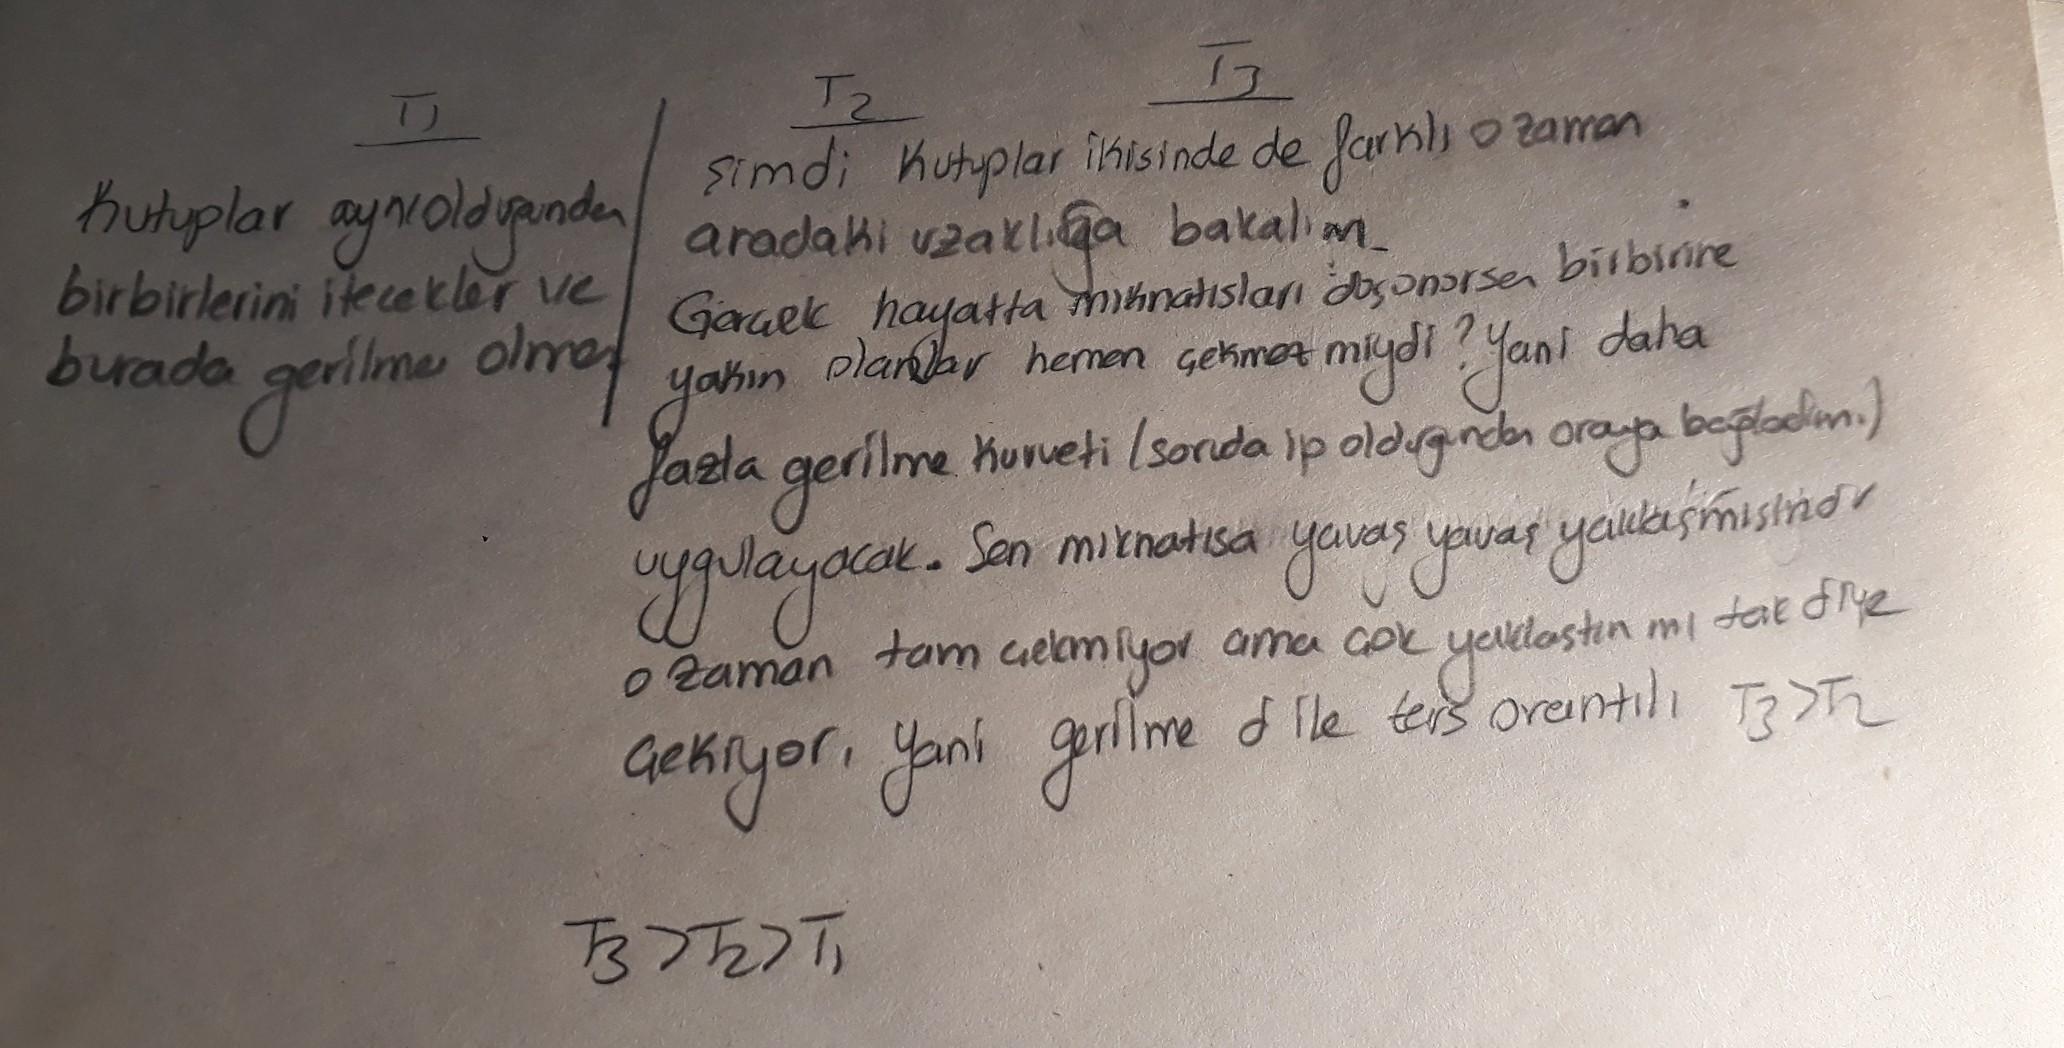 T1
Kutuplar aynı olduğundan
birbirlerini itecekler ve
burada gerilme olmaz
T2
T3
Şimdi Kutuplar ikisinde de farklı o zaman
aradaki uzaklığa bakalım.
Gerçek hayatta mıknatısları düşünürsen birbirine
yakın olanlar hemen çekmez miydi? Yani daha
fazla gerilme kuvveti (soruda ip olduğundan oraya bağladım.)
uygulayacak. Sen mıknatısa yavaş yavaş yaklaşmışındır
o zaman tam çekmiyor ama çok yaklaştın mı tak diye
çekiyor, Yani gerilme d ile ters orantılı T3>T2
T3>T2>T1